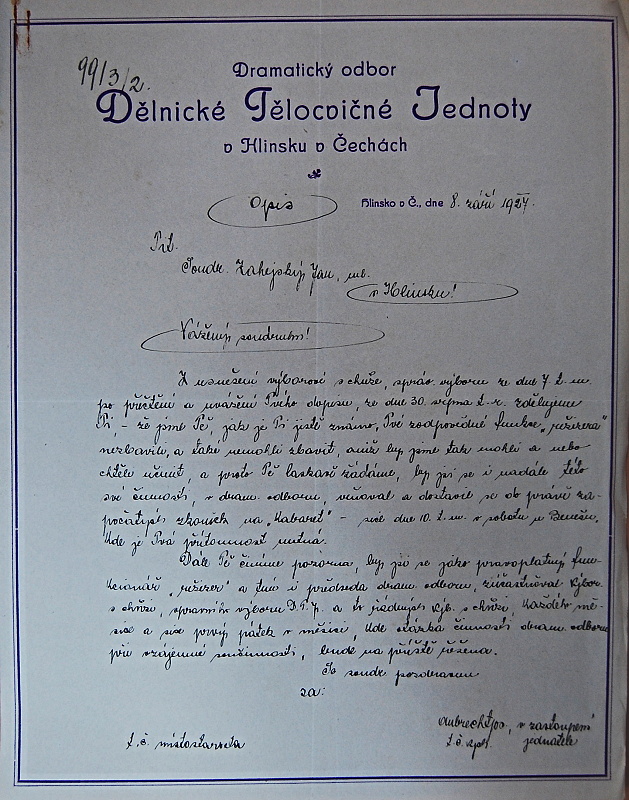 99/3/2.
Dramatický odbor
Dělnické Tělocvičné Jednoty
v Hlinsku v Čechách
Opis
Hlinsko v Č., dne 8. září 1927.
Tit.
Soudr. Zahejský Jan, 
v Hlinsku!
Vážený soudruhu!
Z usnešení výborové schůze, správ. výboru ze dne 7. t. m.
po přečtění a uvážení Tvého dopisu, ze dne 30. srpna t. r. zdělujeme
Ti, - že jsme Tě, jak je Ti jistě známo, Tvé zodpovědné funkce "režisera"
nezbavili, a také nemohli zbavit, aniž by jsme tak mohli a nebo
chtěli učinit, a proto Tě laskavě žádáme, by jsi se i nadále této
své činnosti, v dram. odboru, věnoval a dostavil se ob právě za-
počatých zkoušek na "Kabaret" - sice dne 10. t. m. v sobotu u Benešů,
kde je Tvá přítomnost nutná.
Dále Tě činíme pozorna, by jsi se jako pravoplatný fun-
kcionář "režiser" a tím i předseda dram. odboru, zúčastňoval výbor.
schůzí, správního výboru D.T.J. a to řádných výb. schůzí, každého mě-
síce a sice prvý pátek v měsíci, kde otázka činnosti dram. odboru
při vzájemné součinnosti, bude na příště řešena.
Se soudr. pozdravem
za:
t. č. místostarosta
v zastoupení
t. č. jednatele